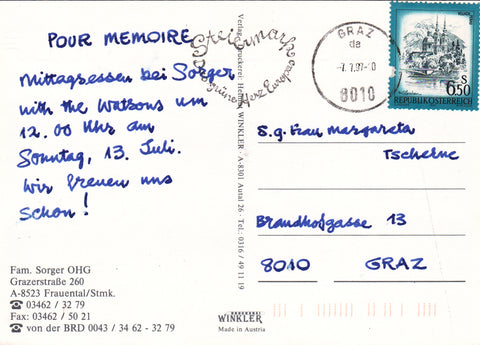 POUR MEMOIRE
Mittagsessen bei Sorger
with the Watsons um
12.00 Uhr am
Sonntag, 13. Juli.
Wir freuen uns
schon!
Fam. Sorger OHG
Grazerstraße 260
A-8523 Frauental/Stmk.
☎ 03462 / 32 79
Fax: 03462 / 50 21
☎ von der BRD 0043 / 34 62 - 32 79
Steiermark
das grüne Herz Europas
Verlag u. Druckerei: WINKLER · A-8301 Autal 26 · Tel.: 0316 / 49 11 19
WINKLER
Made in Austria
GRAZ
8010
S
6.50
REPUBLIK ÖSTERREICH
S.g. Frau Margareta
Tscherne
Brandhofgasse 13
8010 GRAZ